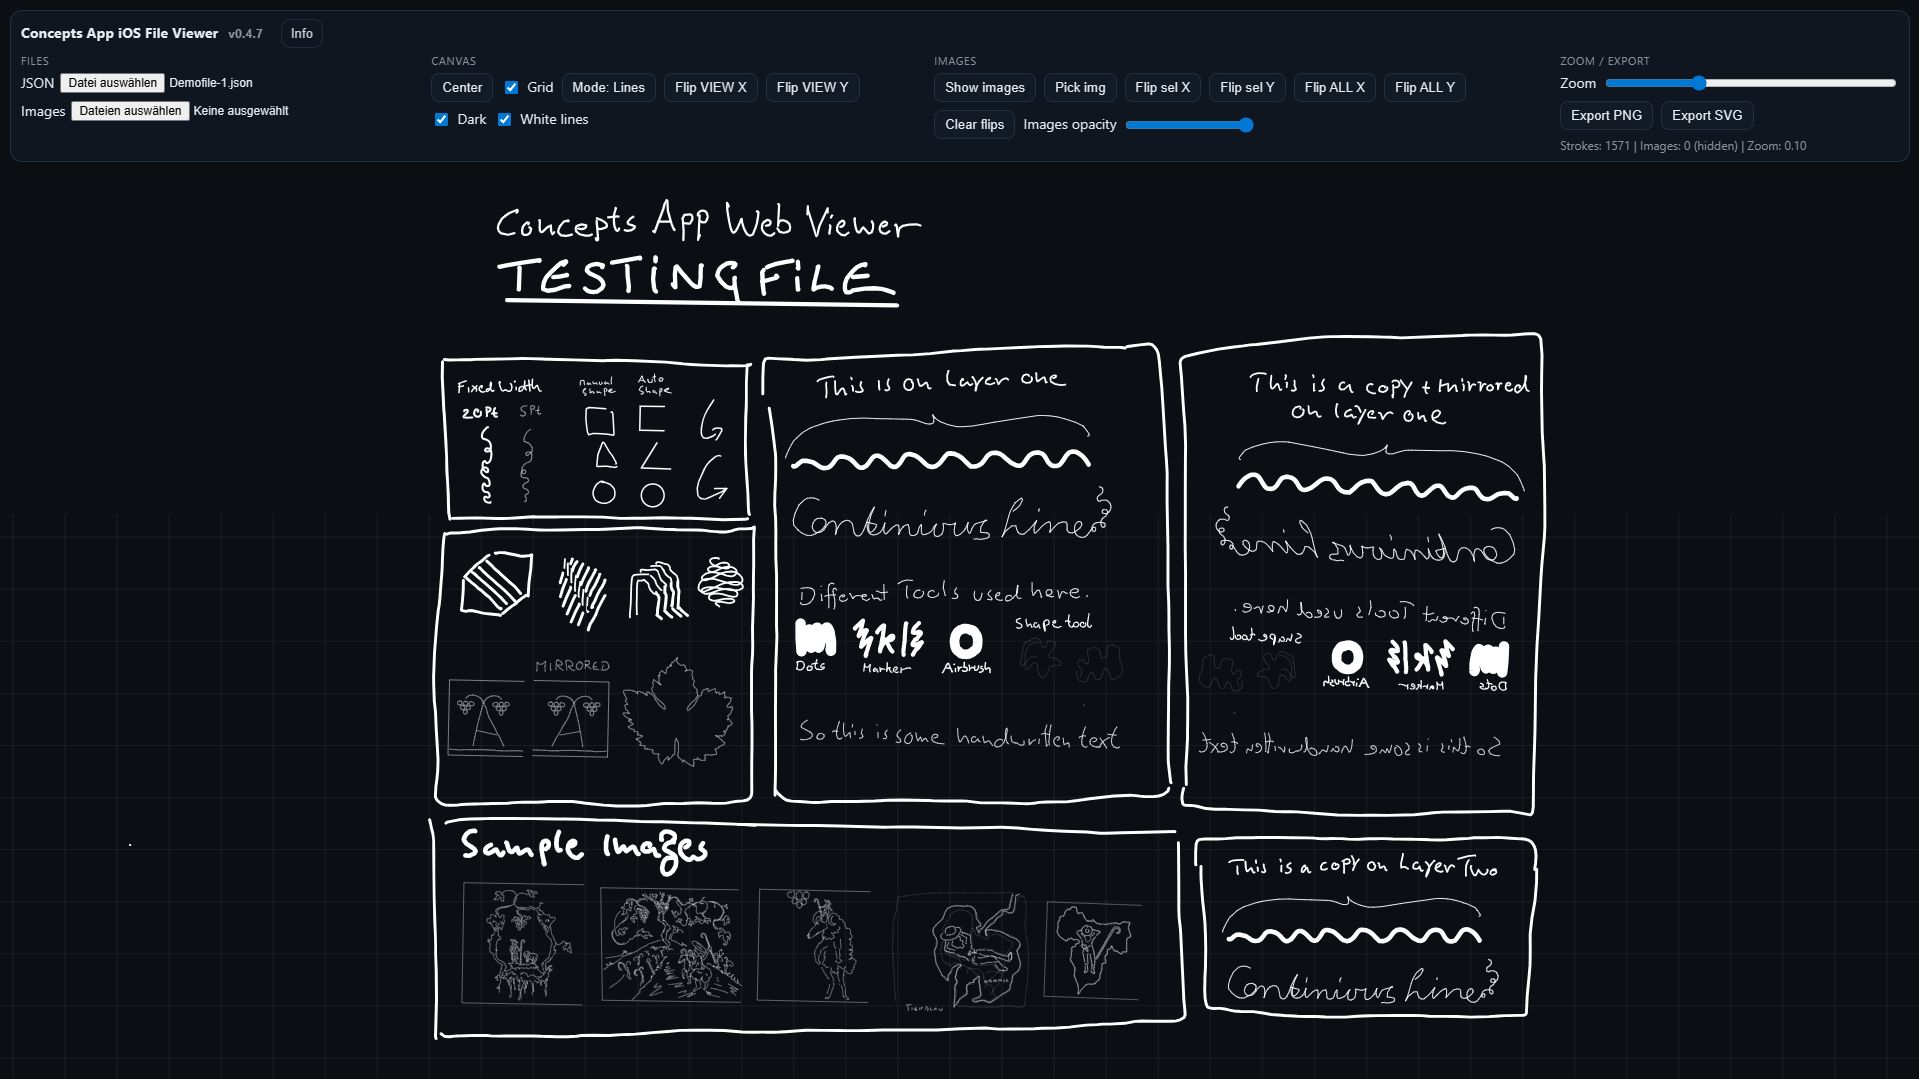 Concepts App iOS File Viewer v0.4.7 Info
FILES
JSON Datei auswählen Demofile-1.json
Images Dateien auswählen Keine ausgewählt
CANVAS
Center Grid Mode: Lines Flip VIEW X Flip VIEW Y
Dark White lines
IMAGES
Show images Pick img Flip sel X Flip sel Y Flip ALL X Flip ALL Y
Clear flips Images opacity
ZOOM / EXPORT
Zoom
Export PNG Export SVG
Strokes: 1571 | Images: 0 (hidden) | Zoom: 0.10
Concepts App Web Viewer
TESTING FiLE
Fixed Width
20Pt 5Pt
manual shape
Auto shape
MIRRORED
This is on Layer one
Continious Line
Different Tools used here.
Shape tool
Dots Marker Airbrush
So this is some handwritten text
This is a copy + mirrored
on layer one
Continious Line
Different Tools used here.
Shape tool
Dots Marker Airbrush
So this is some handwritten text
Sample Images
This is a copy on Layer Two
Continious Line